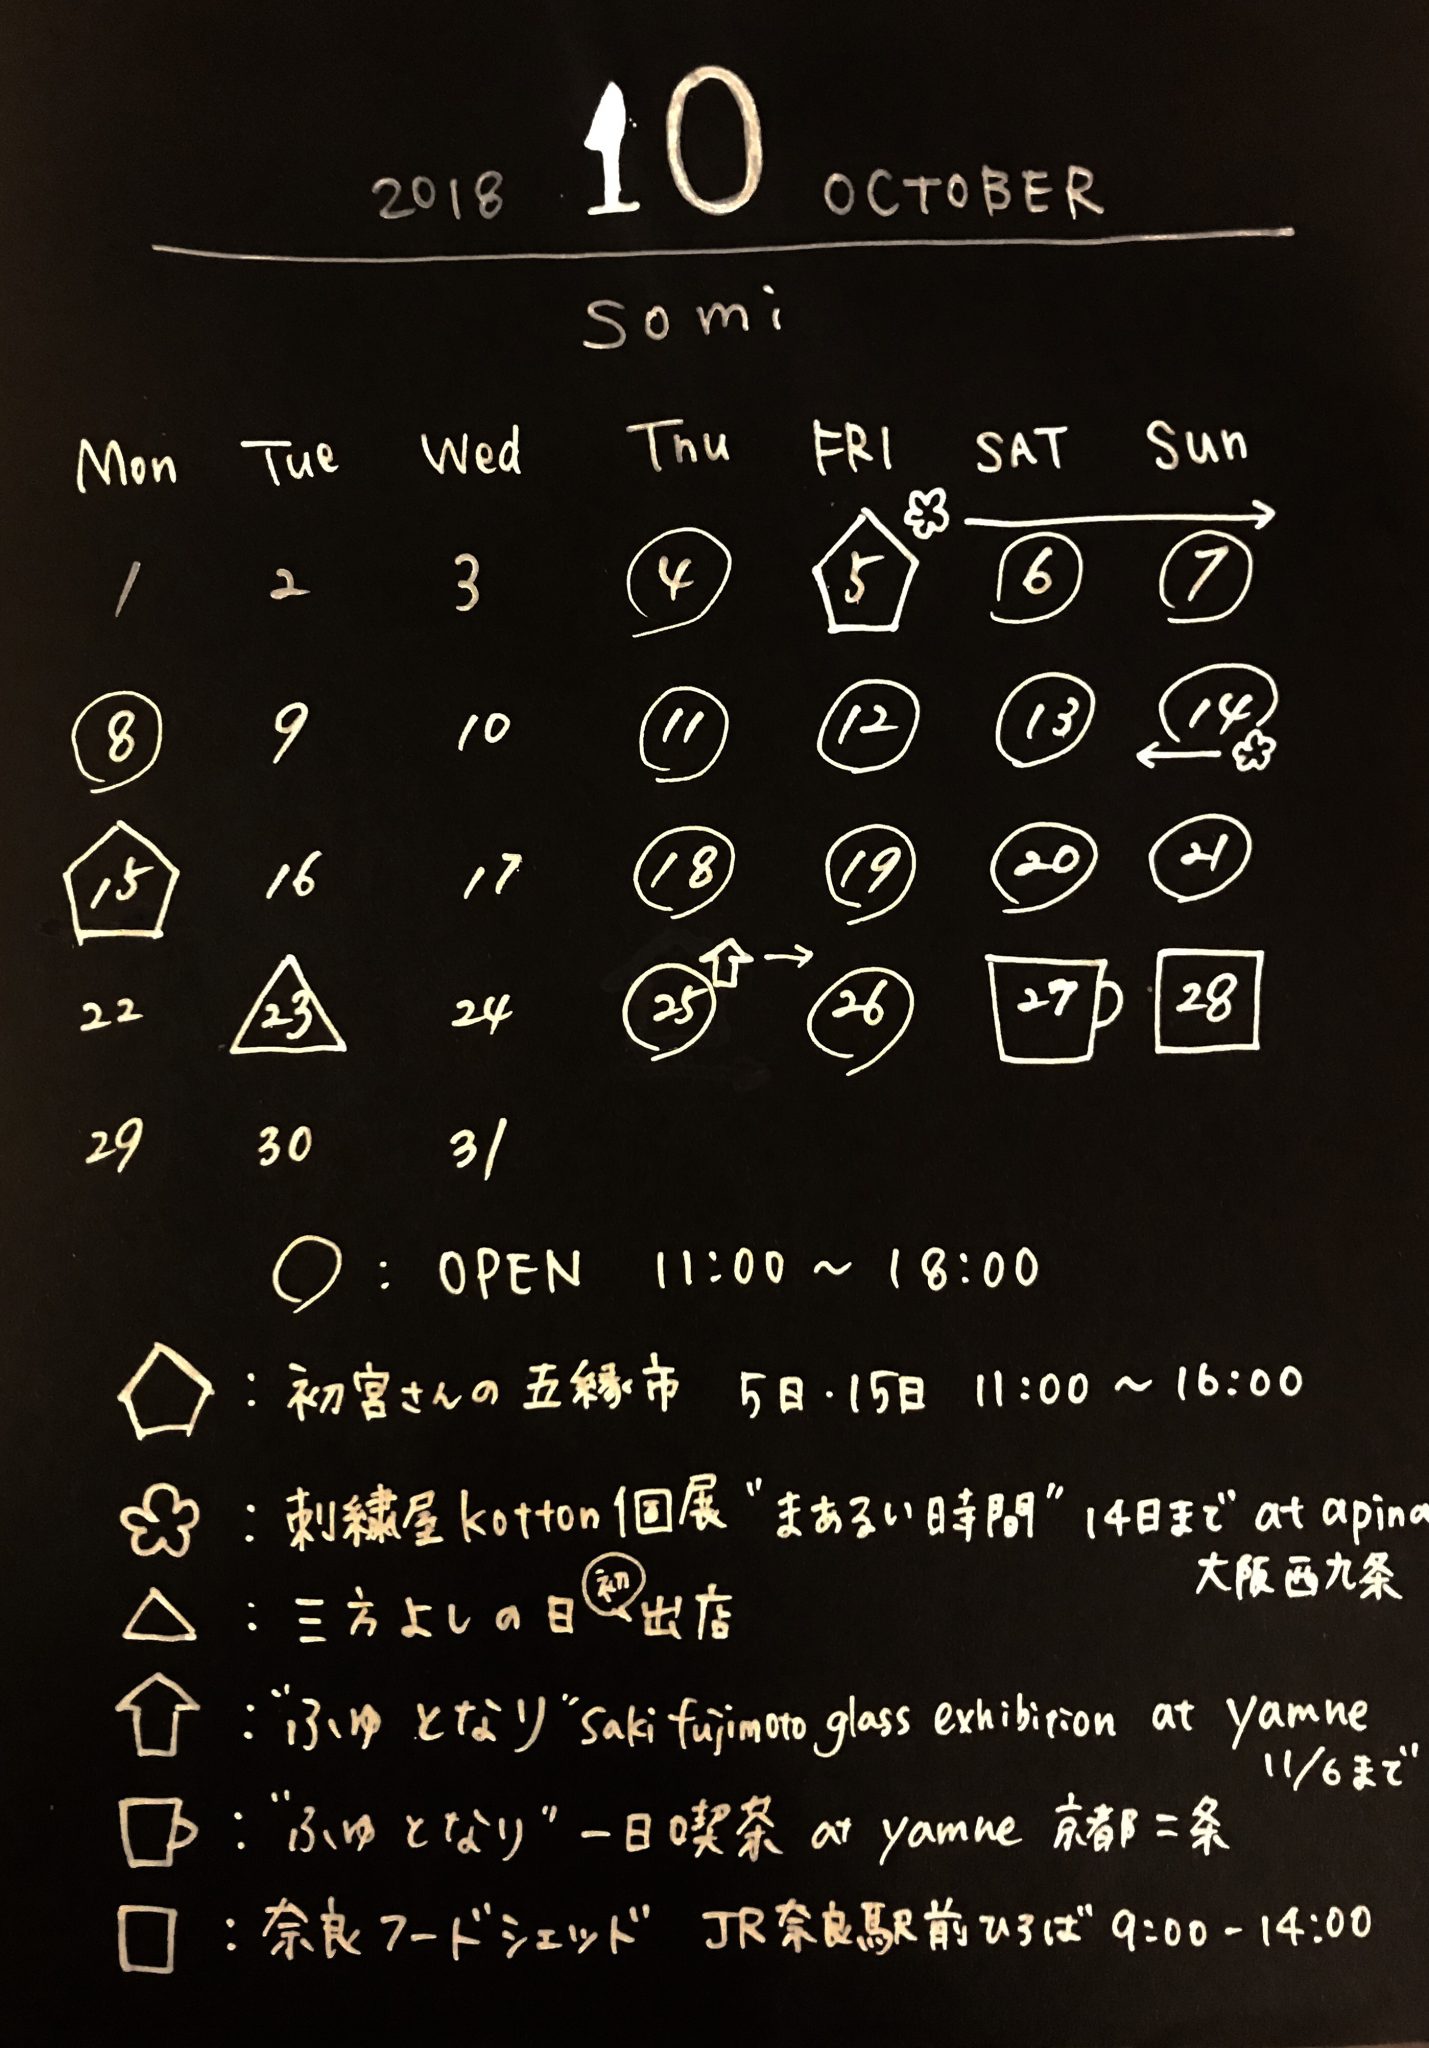 2018 10 OCTOBER
Somi
Mon Tue Wed Thu FRI SAT Sun
1 2 3 4 5 6 7
8 9 10 11 12 13 14
15 16 17 18 19 20 21
22 23 24 25 26 27 28
29 30 31
: OPEN 11:00 ~ 18:00
: 初宮さんの五縁市 5日・15日 11:00 ~ 16:00
: 刺繍屋kotton個展 "まあるい時間" 14日まで at apina
大阪西九条
: 三方よしの日 初 出店
: "ふゆ となり" Saki fujimoto glass exhibition at yamne
11/6まで
: "ふゆ となり" 一日喫茶 at yamne 京都二条
: 奈良フードシェッド JR奈良駅前ひろば 9:00 - 14:00